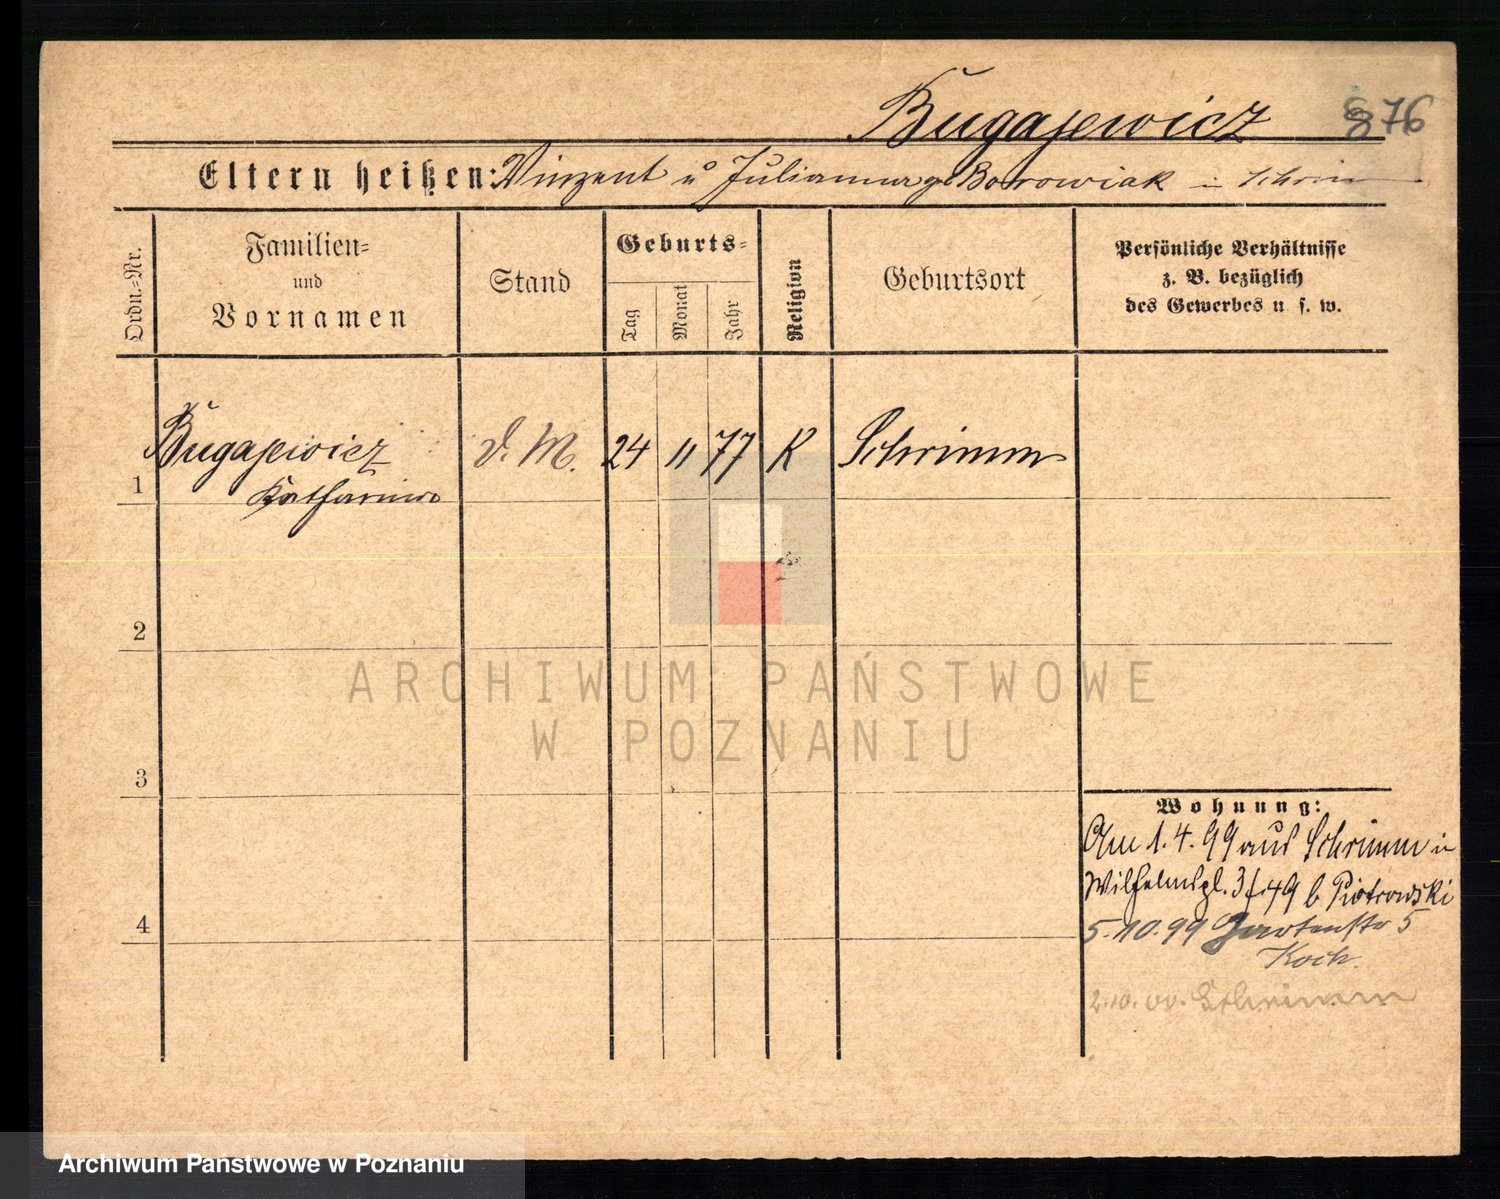 Bugajewicz 876
Eltern heißen: Vinzent u Julianna g. Borowiak in Schrim
Ordn.-Nr.
Familien-
und
Vornamen
Stand
Geburts-
Tag
Monat
Jahr
Religion
Geburtsort
Persönliche Verhältnisse
z. B. bezüglich
des Gewerbes u. s. w.
1
Bugajewicz
Katharina
d. M.
24
11
77
K
Schrimm
2
3
4
Wohnung:
Am 1. 4. 99 aus Schrimm in
Wilhelmspl. 3 b Piotrowski
5.10.99 Gartenstr 5
Koch
2.10.00. Schrimm
ARCHIWUM PAŃSTWOWE
W POZNANIU
Archiwum Państwowe w Poznaniu